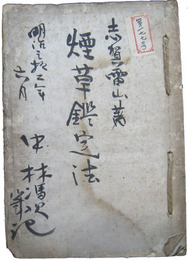 志賀雷山著
煙草鑑定法
明治三拾三年
六月
中林馮次